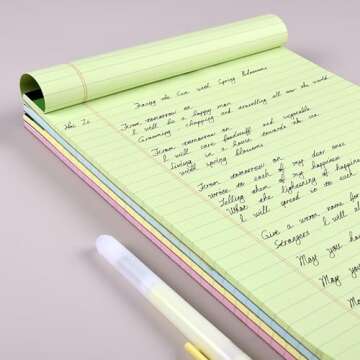 Facing the Sea with Spring Blossoms
Hai Zi
From tomorrow on
I will be a happy man
Grooming, chopping and travelling all over the world
From tomorrow on
I will care foodstuff and vegetable
Living in a house towards the sea
with spring blossoms
From tomorrow on
wrote to each of my dear ones
Telling them of my happiness
What the lightening of happiness
I will spread it to each
Give a warm name for
Strangers I will
May you
May you
May